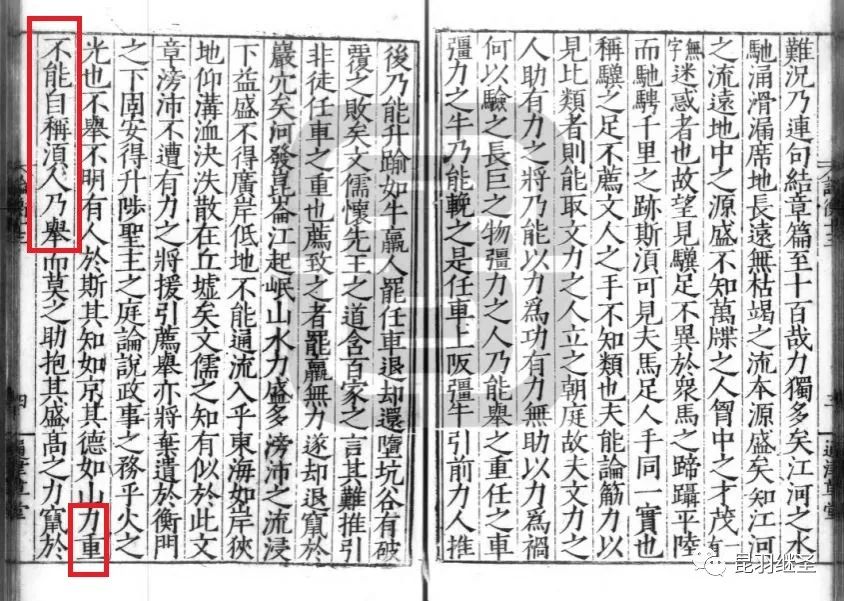 難況乃連句結章篇至十百哉力獨多矣江河之水
馳涌滑漏席地長遠無枯竭之流本源盛矣知江河
之流遠地中之源盛不知萬牒之人胷中之才茂一有
無字迷惑者也故望見驥足不異於衆馬之蹄躡平陸
而馳騁千里之跡斯湏可見夫馬足人手同一實也
稱驥之足不薦文人之手不知類也夫能論筋力以
見比類者則能取文力之人立之朝庭故夫文力之
人助有力之將乃能以力爲功有力無助以力爲禍
何以驗之長巨之物彊力之人乃能舉之重任之車
彊力之牛乃能輓之是任車上阪彊牛引前力人推
後乃能升踰如牛羸人罷任車退却還墮坑谷有破
覆之敗矣文儒懷先王之道含百家之言其難推引
非徒任車之重也薦致之者罷羸無力遂却退竄於
巖穴矣河發崑崙江起岷山水力盛多滂沛之流浸
下益盛不得廣岸低地不能通流入乎東海如岸狹
地仰溝洫決泆散在丘墟矣文儒之知有似於此文
章滂沛不遭有力之將援引薦舉亦將棄遺於衡門
之下固安得升陟聖主之庭論說政事之務乎火之
光也不舉不明有人於斯其知如京其德如山力重
不能自稱湏人乃舉而莫之助抱其盛髙之力竄於
昆羽继圣